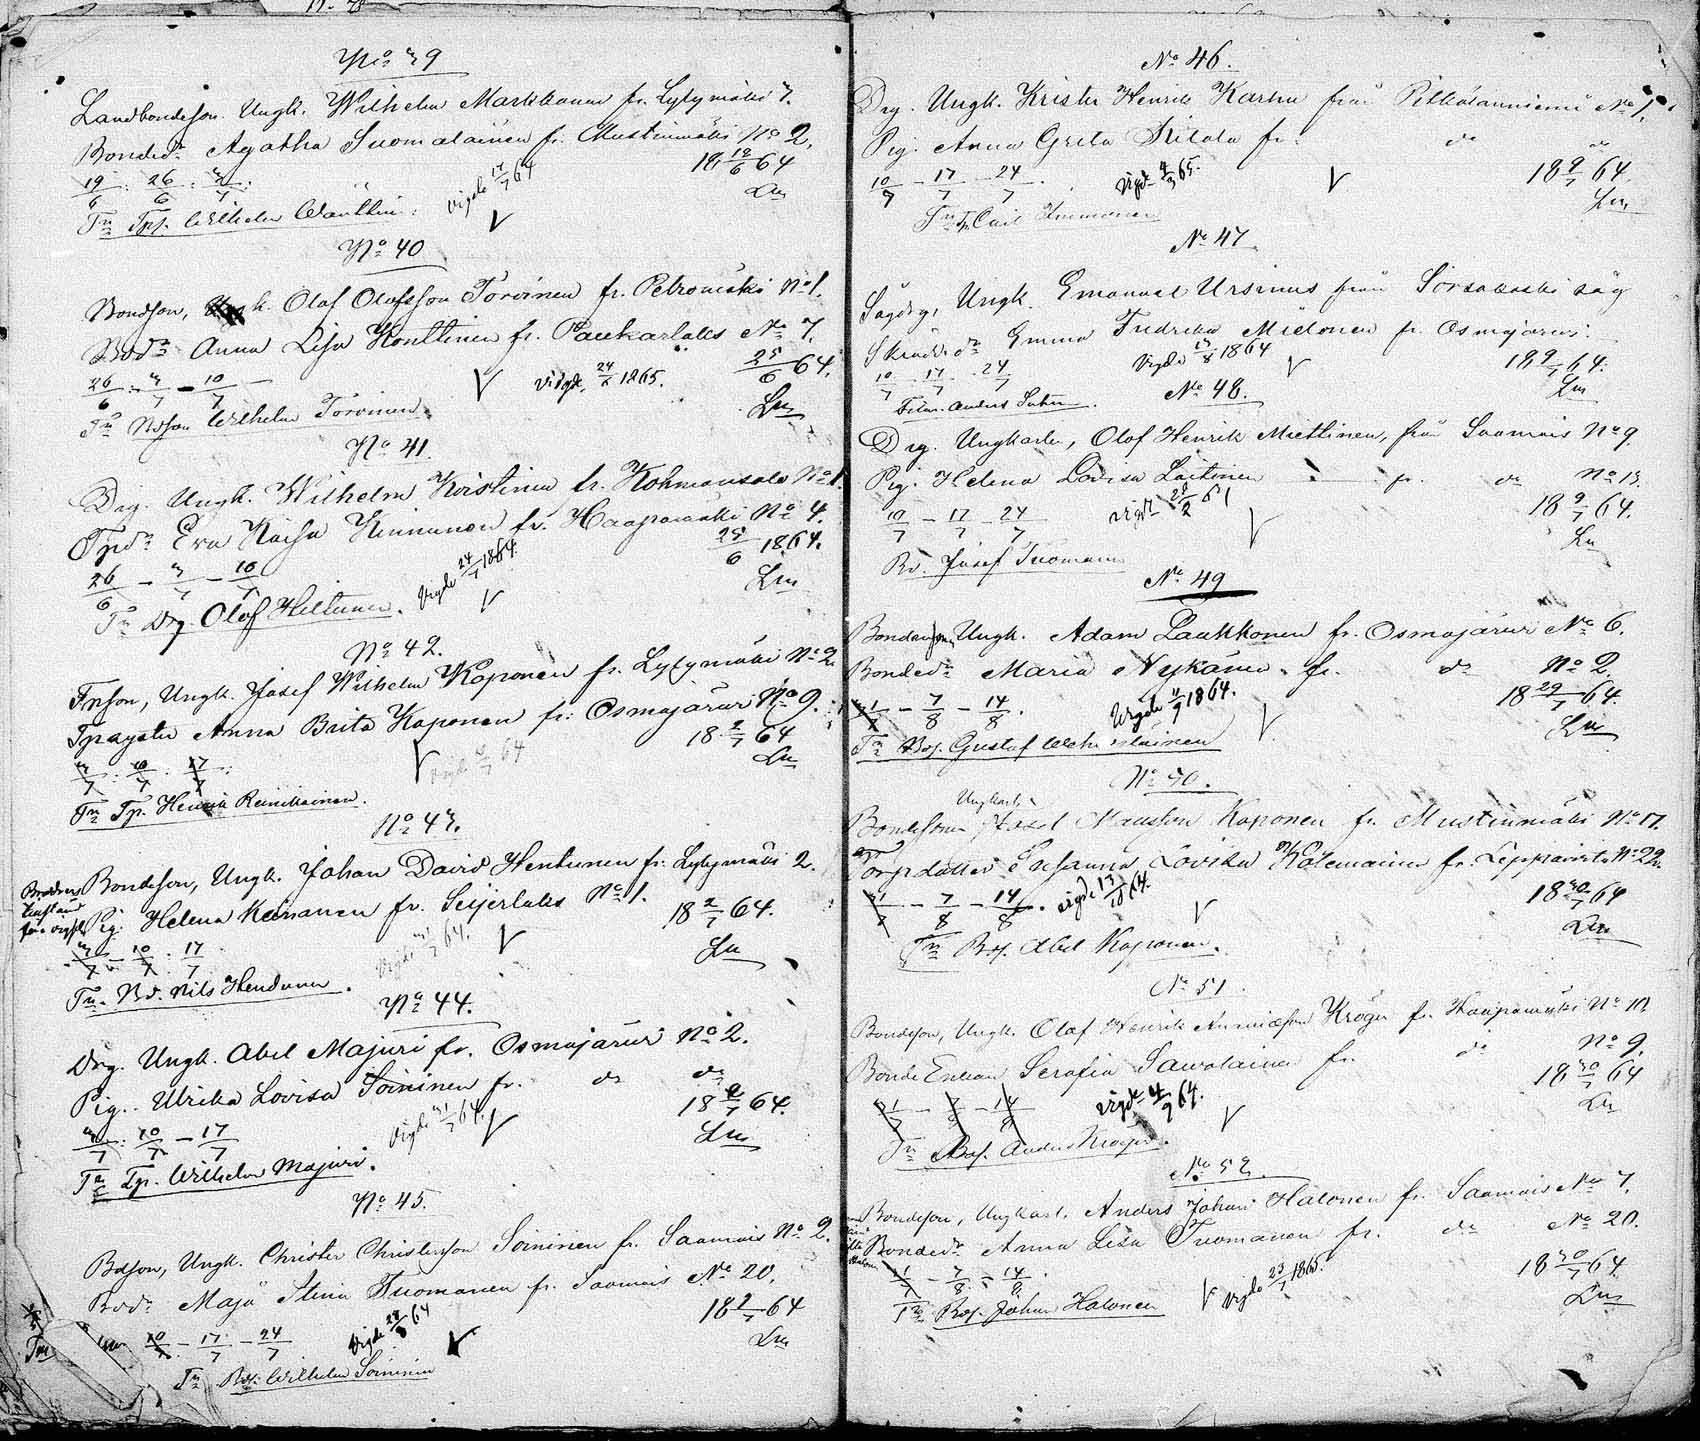 No 39
Landbondeson Ungk. Wilhelm Markkanen fr. Lylymäki 7.
Bondedr Agatha Suomalainen fr. Mustinmäki No 2.
19/6 : 26/6 : 3/7 : Vigde 17/7 64 18 18/6 64
Tn Tpf. Wilhelm Wänttin: Lm
No 40
Bondson, Ungk. Olof Olofsson Torvinen fr. Petromäki No 1.
Bodr Anna Lisa Konttinen fr. Paukarlaks No 7.
26/6 - 3/7 - 10/7 Vigde. 24/6 1865. 25/6 64.
Tn Bdson Wilhelm Torvinen. Lm
No 41.
Drg. Ungk. Wilhelm Koistinen fr. Kohmansalo No 1.
Tpdr Eva Kaisa Kinnunen fr. Haapamäki No 4.
26/6 - 3/7 - 10/7 Vigde 24/7 1864. 25/6 1864.
Tn Drg. Olof Hiltunen. Lm
No 42.
Inhson, Ungk. Josef Wilhelm Koponen fr. Lylymäki No 2.
Tpayster Anna Brita Koponen fr: Osmajärvi No 9.
3/7 : 10/7 : 17/7 : Vigde 64 18 2/7 64
Tn Tp. Henrik Reinikainen. Lm
No 43.
Bondeson, Ungk. Johan David Hentunen fr. Lylymäki 2.
Pig. Helena Keinanen fr. Seijerlaks No 1.
3/7 - 10/7 : 17/7 Vigde 31/7 64. 18 2/7 64.
Tn. Bd. Nils Hendunen. Lm
No 44.
Drg. Ungk. Abel Majuri fr. Osmajärvi No 2.
Pig. Ulrika Lovisa Soininen fr. do do
3/7 : 10/7 - 17/7 Vigde 31/7 64. 18 2/7 64.
Tn Tp. Wilhelm Majuri. Lm
No 45.
Bdson, Ungk. Christer Christersson Soininen fr. Saamais No 2.
Bodr Maja Stina Tuomanen fr. Saamais No 20.
10/7 - 17/7 - 24/7 Vigde 28/8 64 18 9/7 64
Tn Bdf. Wilhelm Soininen Lm
No 46.
Drg. Ungk. Krister Henrik Karhu från Pitkälänniemi No 1.
Pig. Anna Greta Sitola fr. do do
10/7 - 17/7 - 24/7. Vigde 4/3 65. 18 9/7 64.
Tn Tp Carl Immonen Lm
No 47.
Sågdrg, Ungk. Emanuel Ursinus från Sorsakoski såg
Skräddr dr Emma Fredrika Mietonen fr. Osmajärvi.
10/7 - 17/7 - 24/7 Vigde 13/8 1864 18 9/7 64.
Anders Lm
No 48.
Drg. Ungkarln, Olof Henrik Miettinen, från Saamais No 9
Pig. Helena Lovisa Laitinen fr. do No 13.
10/7 - 17/7 - 24/7 vigde 18 9/7 64.
Bd. Josef Tuomanen Lm
No 49
Bondeson, Ungk. Adam Laukkonen fr. Osmajärvi No 6.
Bondedr Maria Nykänen fr. do No 2.
31/7 - 7/8 - 14/8. Vigde 11/9 1864. 18 29/7 64.
Tn Bdf. Gustaf Lm
No 50.
Ungkarl.
Bondeson Josef Mausson Koponen fr. Mustinmäki No 17.
Torpdotter Susanna Lovisa Kolemainen fr. Leppävirta No 22.
31/7 - 7/8 - 14/8. vigde 13/10 64. 18 30/7 64
Tn Bdf. Abel Koponen. Lm
No 51.
Bondeson, Ungk. Olof Henrik Kröger fr. Haapamäki No 10
Bonde Enkan Serafia Sawolainen fr. do No 9.
31/7 - 7/8 - 14/8 vigde 4/9 64. 18 30/7 64
Tn Bdf. Anders Kröger. Lm
No 52.
Bondeson, Ungkarl. Anders Johan Halonen fr. Saamais No 7.
Bondedr Anna Lisa Tuomanen fr. do No 20.
31/7 - 7/8 - 14/8. Vigde 23/7 1865. 18 30/7 64.
Tn Bdf. Johan Halonen Lm